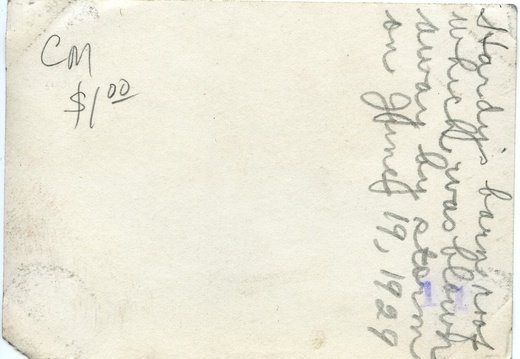 CM
$1.00
Hardy's barn roof
which was blown
away by storm
on June 19, 1929